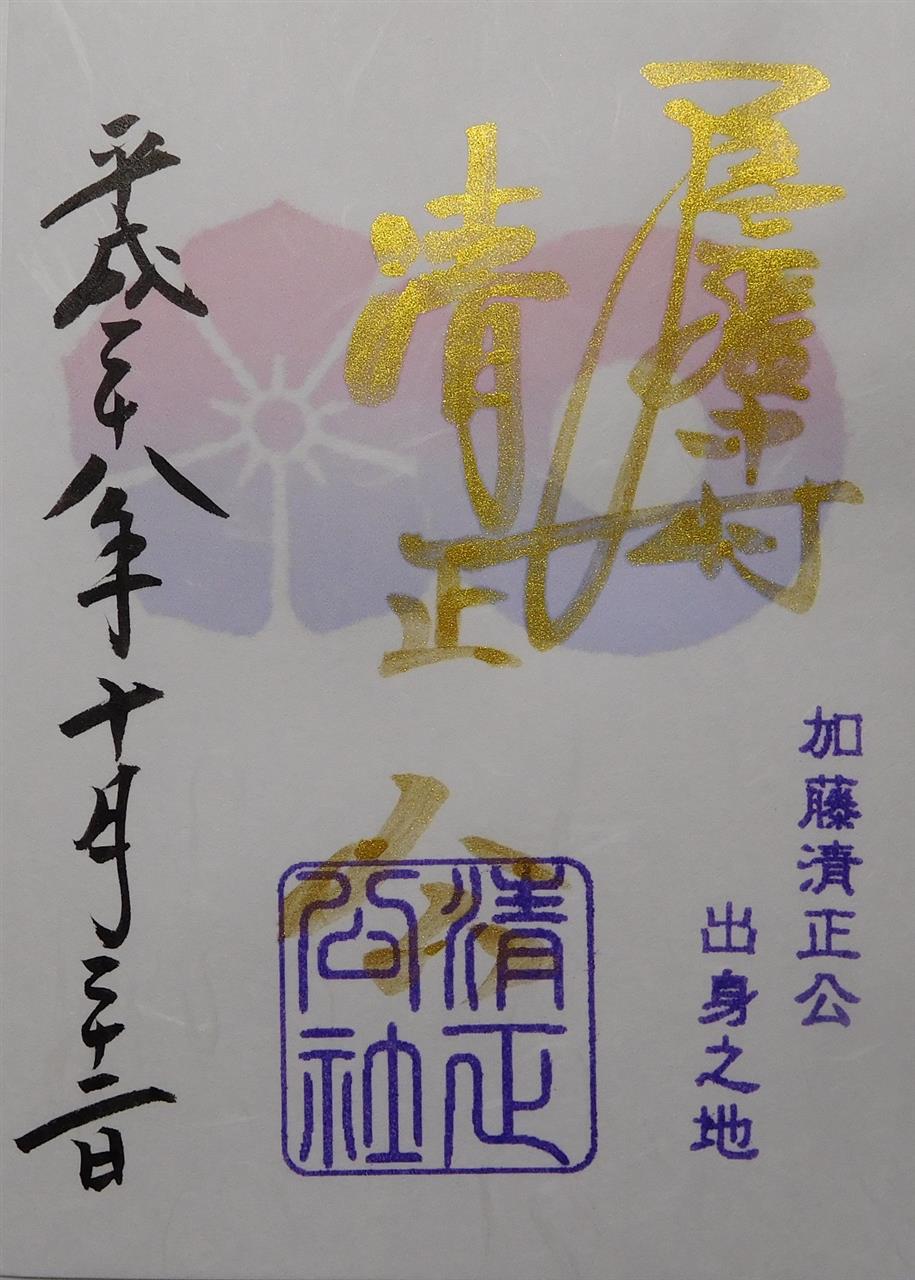 尾張中村
清正公
加藤清正公
出身之地
清正
公社
平成二十八年十月二十二日